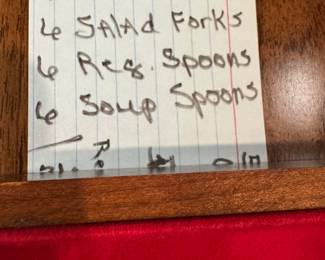 6 SAlAd Forks
6 Reg. Spoons
6 Soup Spoons